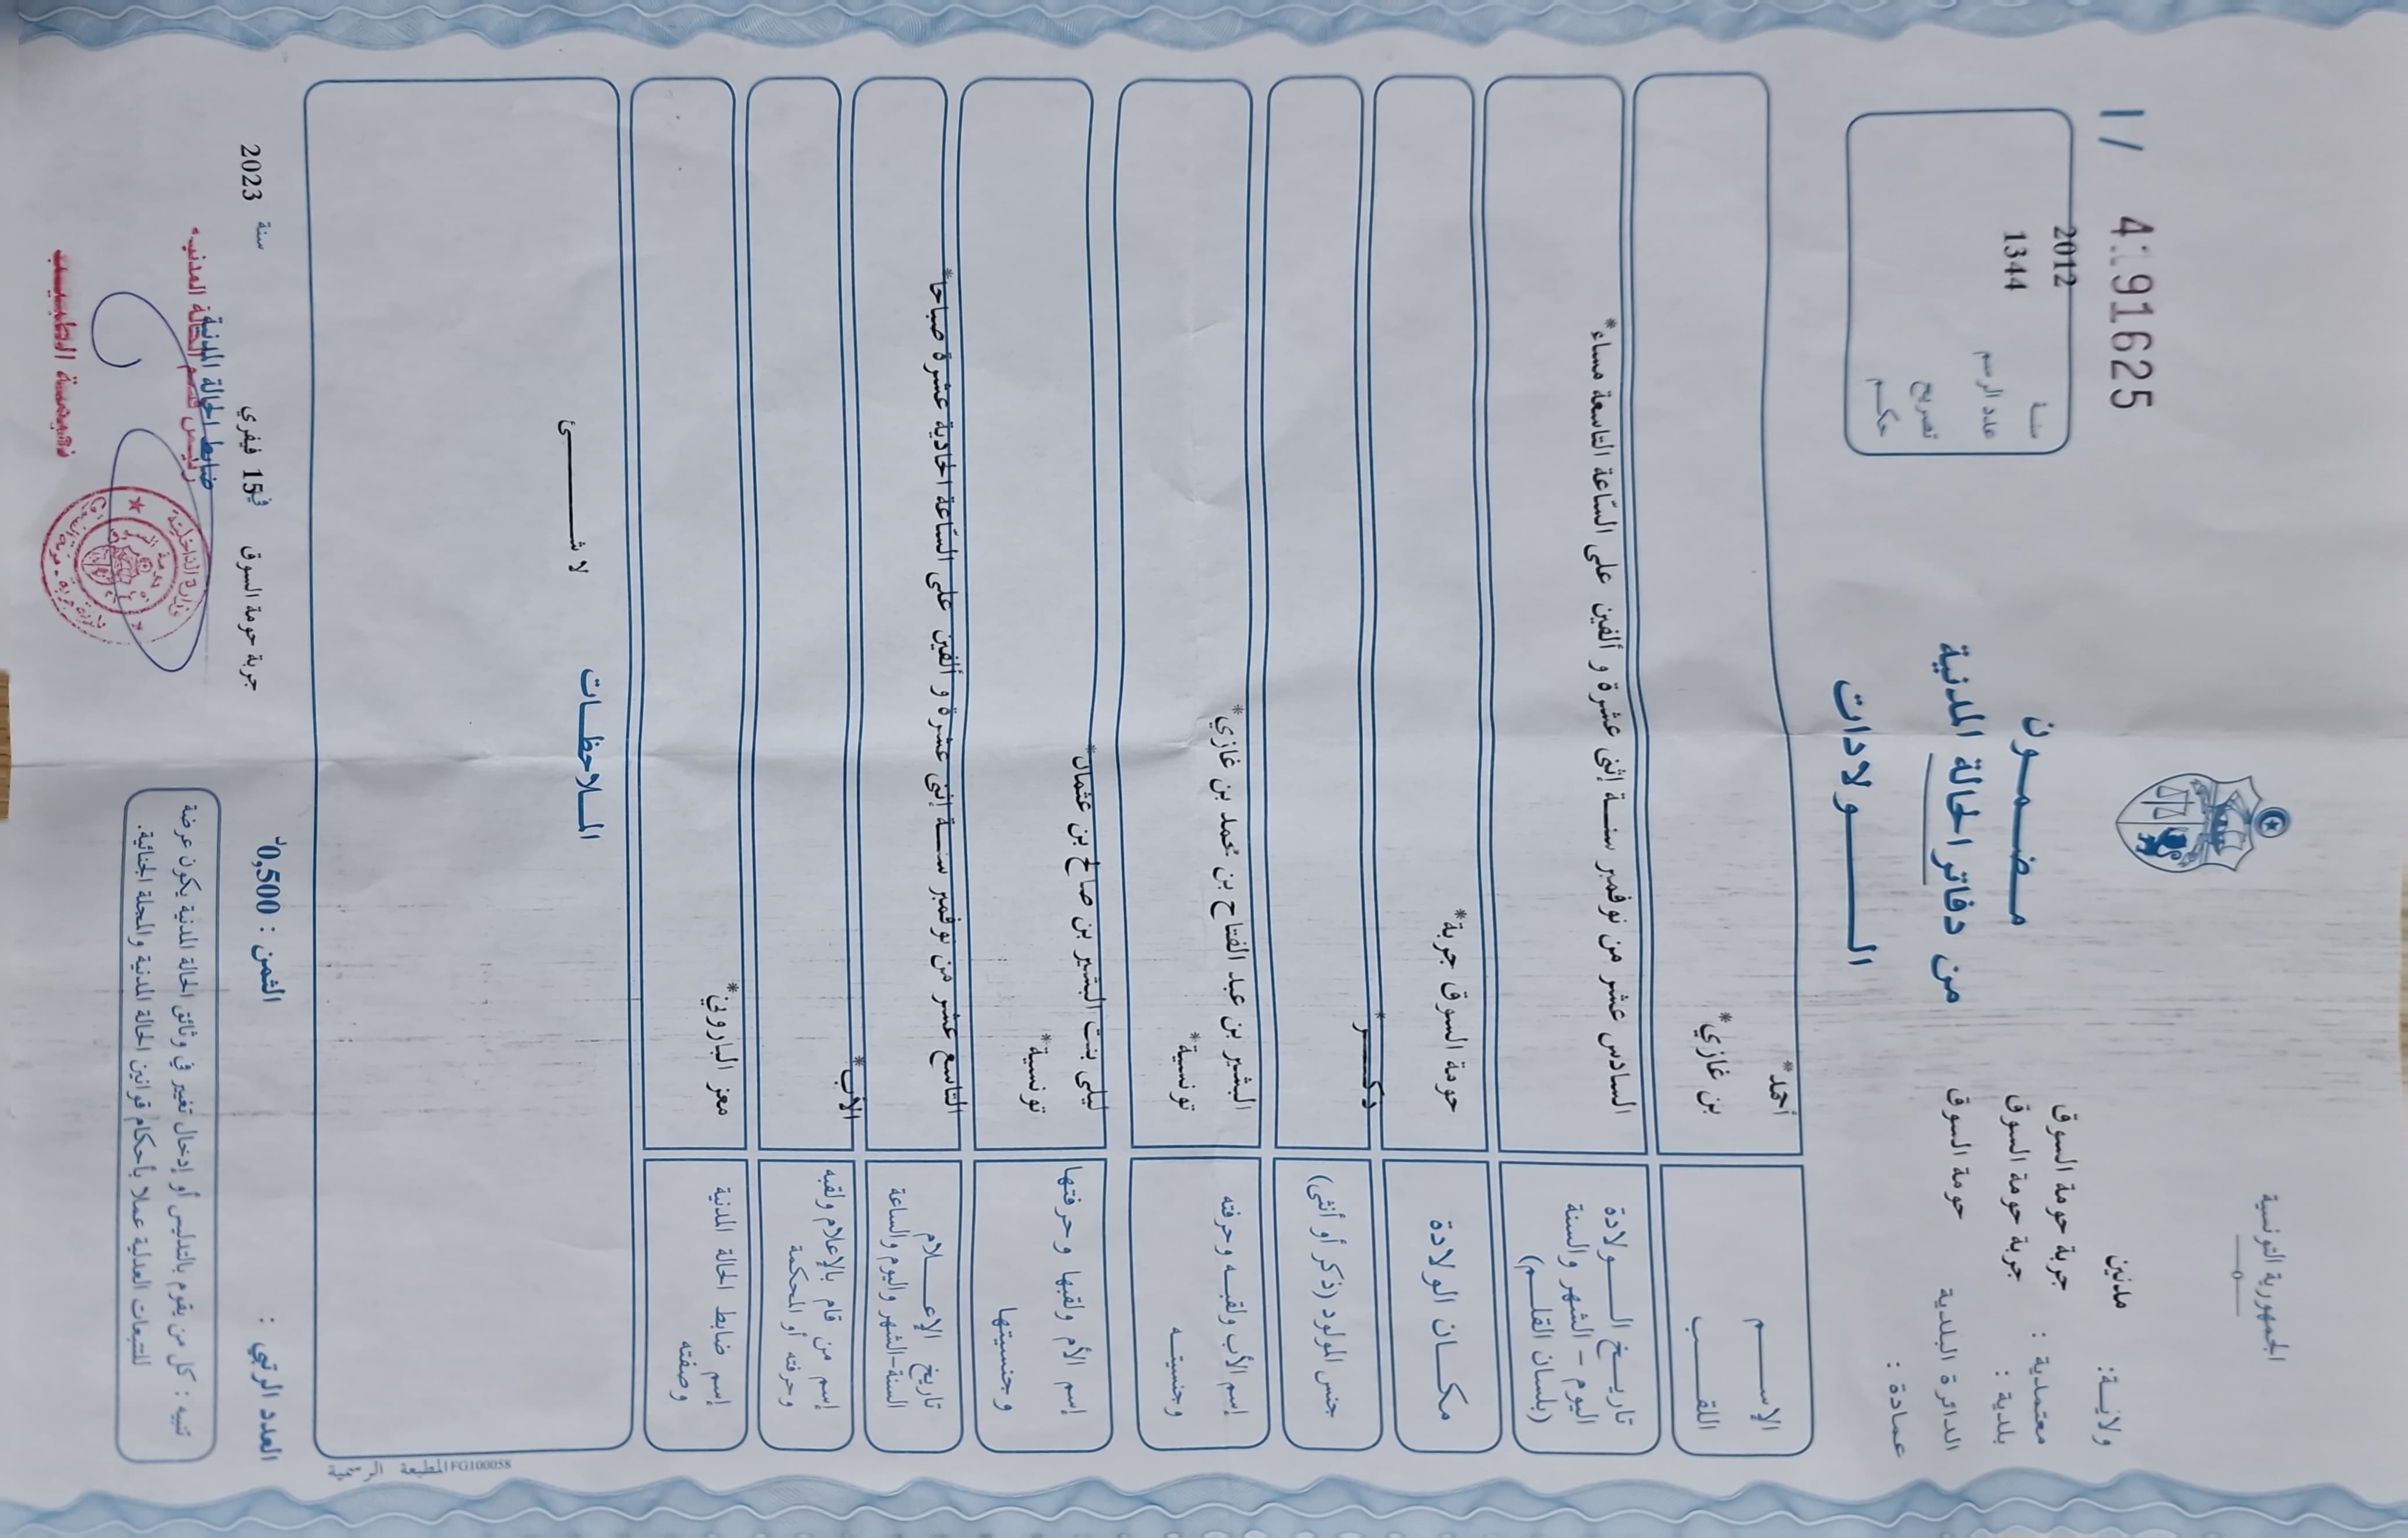 الجمهورية التونسية
ولايـة: مدنين
معتمدية : جربة حومة السوق
بلدية : جربة حومة السوق
الدائرة البلدية حومة السوق
عمادة :
مـضـمـون
من دفاتر الحالة المدنية
الـــولادات
91625
سنـة 2012
عدد الرسم 1344
تصريح
حكـم
الإســـم أحمد*
اللقـــب بن غازي*
تاريـخ الـــولادة
اليوم - الشهر والسنة
(بلسان القلـم)
السادس عشر من نوفمبر سنـة إثنى عشرة و ألفين على السّاعة التاسعة مساء*
مكـان الولادة حومة السوق جربة*
جنس المولود (ذكر أو أنثى) ذكـــر*
إسم الأب ولقبـه وحرفته البشير بن عبد الفتاح بن محمد بن غازي*
وجنسيتـه تونسية*
إسم الأم ولقبها وحرفتها ليلى بنت البشير بن صالح بن عثمان*
وجنسيتها تونسية*
تاريخ الإعـــلام
السنة-الشهر واليوم والساعة
التاسع عشر من نوفمبر سنـة إثنى عشرة و ألفين على السّاعة الحادية عشرة صباحا*
إسم من قام بالإعلام ولقبه
وحرفته أو المحكمة
الأب*
إسم ضابط الحالة المدنية
وصفته
معز الباروني*
المـلاحظـات
لا شـــــئ
المطبعة الرسمية FG100058
العدد الرتبي : الثمن : 0,500د
جربة حومة السوق في 15 فيفري سنة 2023
ضابط الحالة المدنية
رئيس قسم الحالة المدنية
تنبيه : كل من يقوم بالتدليس أو إدخال تغيير في وثائق الحالة المدنية يكون عرضة
للتتبعات العدلية عملا بأحكام قوانين الحالة المدنية والمجلة الجنائية.